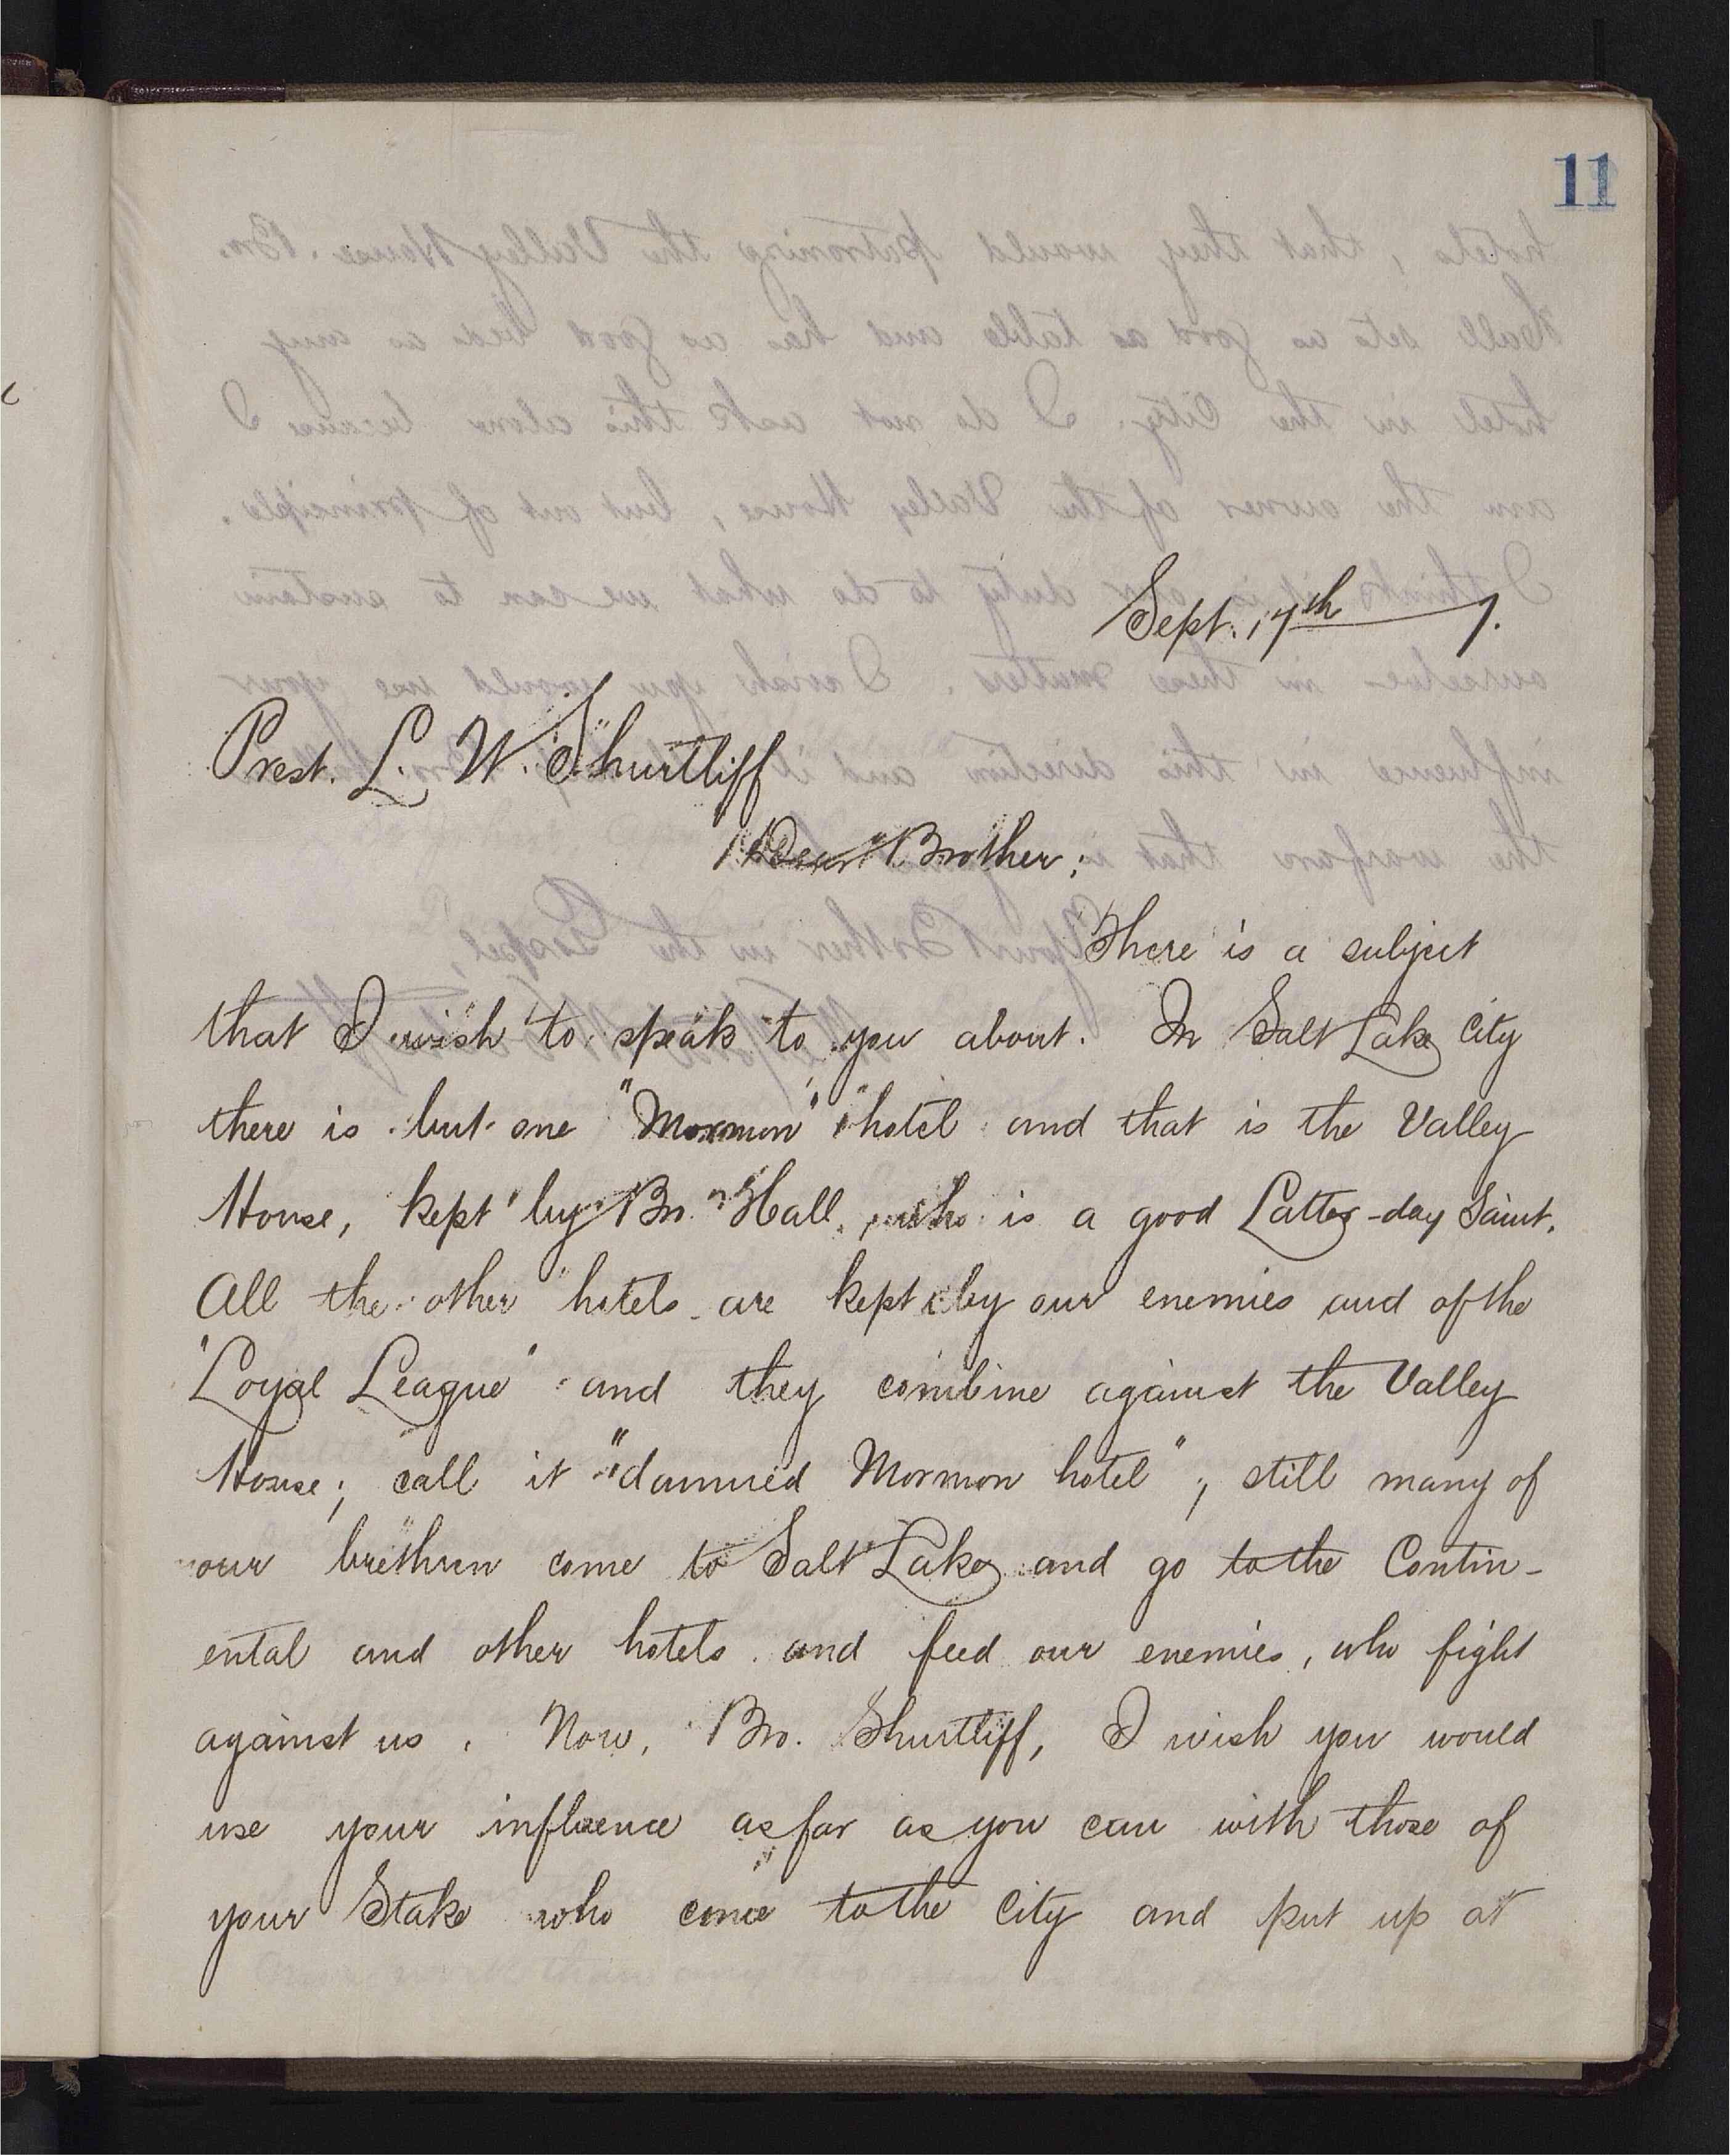 11
Sept. 17th 7.
Prest. L. W. Shurtliff
Dear Brother;
There is a subject
that I wish to speak to you about. In Salt Lake City
there is but one "Mormon" hotel and that is the Valley
House, kept by Bro. Hall, who is a good Latter-day Saint.
All the other hotels are kept by our enemies and of the
"Loyal League" and they combine against the Valley
House; call it "damned Mormon hotel"; still many of
our brethren come to Salt Lake and go to the Contin-
ental and other hotels and feed our enemies, who fight
against us. Now, Bro. Shurtliff, I wish you would
use your influence as far as you can with those of
your Stake who come to the City and put up at